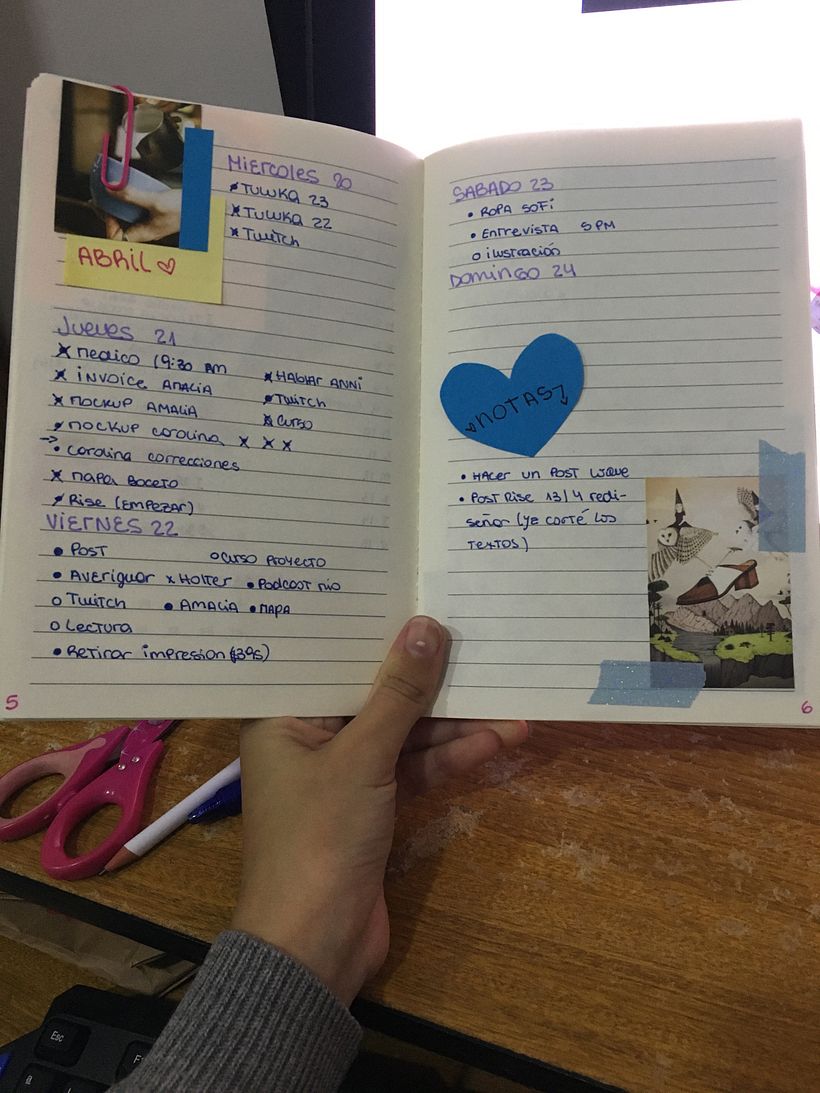 ABRIL ♡
MIERCOLES 20
× TUWKA 23
× TUWKA 22
× TWITCH
Jueves 21
× MEDICO 19:30 AM
× INVOICE AMALIA
× MOCKUP AMALIA
• MOCKUP COROLINA × × ×
→ • COROLINA CORRECCIONES
× MAPA BOCETO
• RISE (EMPEZAR)
× HABLAR ANNI
• TWITCH
× CURSO
VIERNES 22
• POST
○ CURSO PROYECTO
• AVERIGUAR × HOLTER • PODCAST MIO
○ TWITCH • AMALIA • MAPA
○ LECTURA
• RETIRAR IMPRESION ($395)
5
SABADO 23
• ROPA SOFI
• ENTREVISTA 5 PM
○ ILUSTRACIÓN
DOMINGO 24
NOTAS
• HACER UN POST
• POST RISE 13/4 REDI-
SEÑOR (YA CORTÉ LOS
TEXTOS)
6
Esc